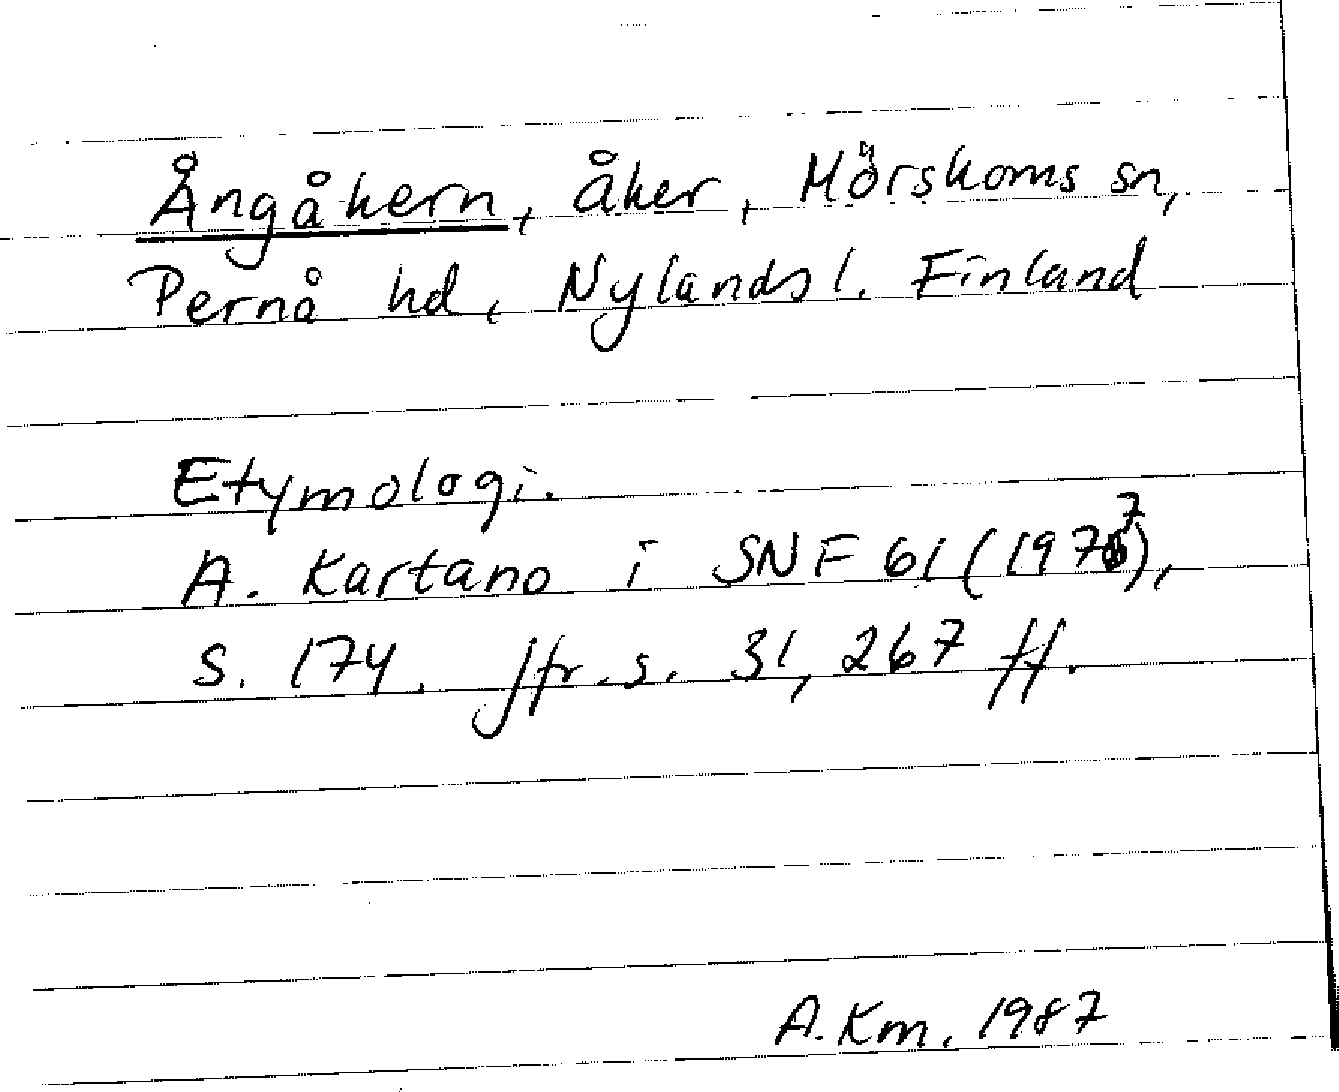 Ångåkern, åker, Mörskoms sn,
Pernå hd, Nylands l. Finland
Etymologi.
A. Kartano i SNF 61 (1977),
s. 174. Jfr. s. 31, 267 ff.
A. Km. 1987